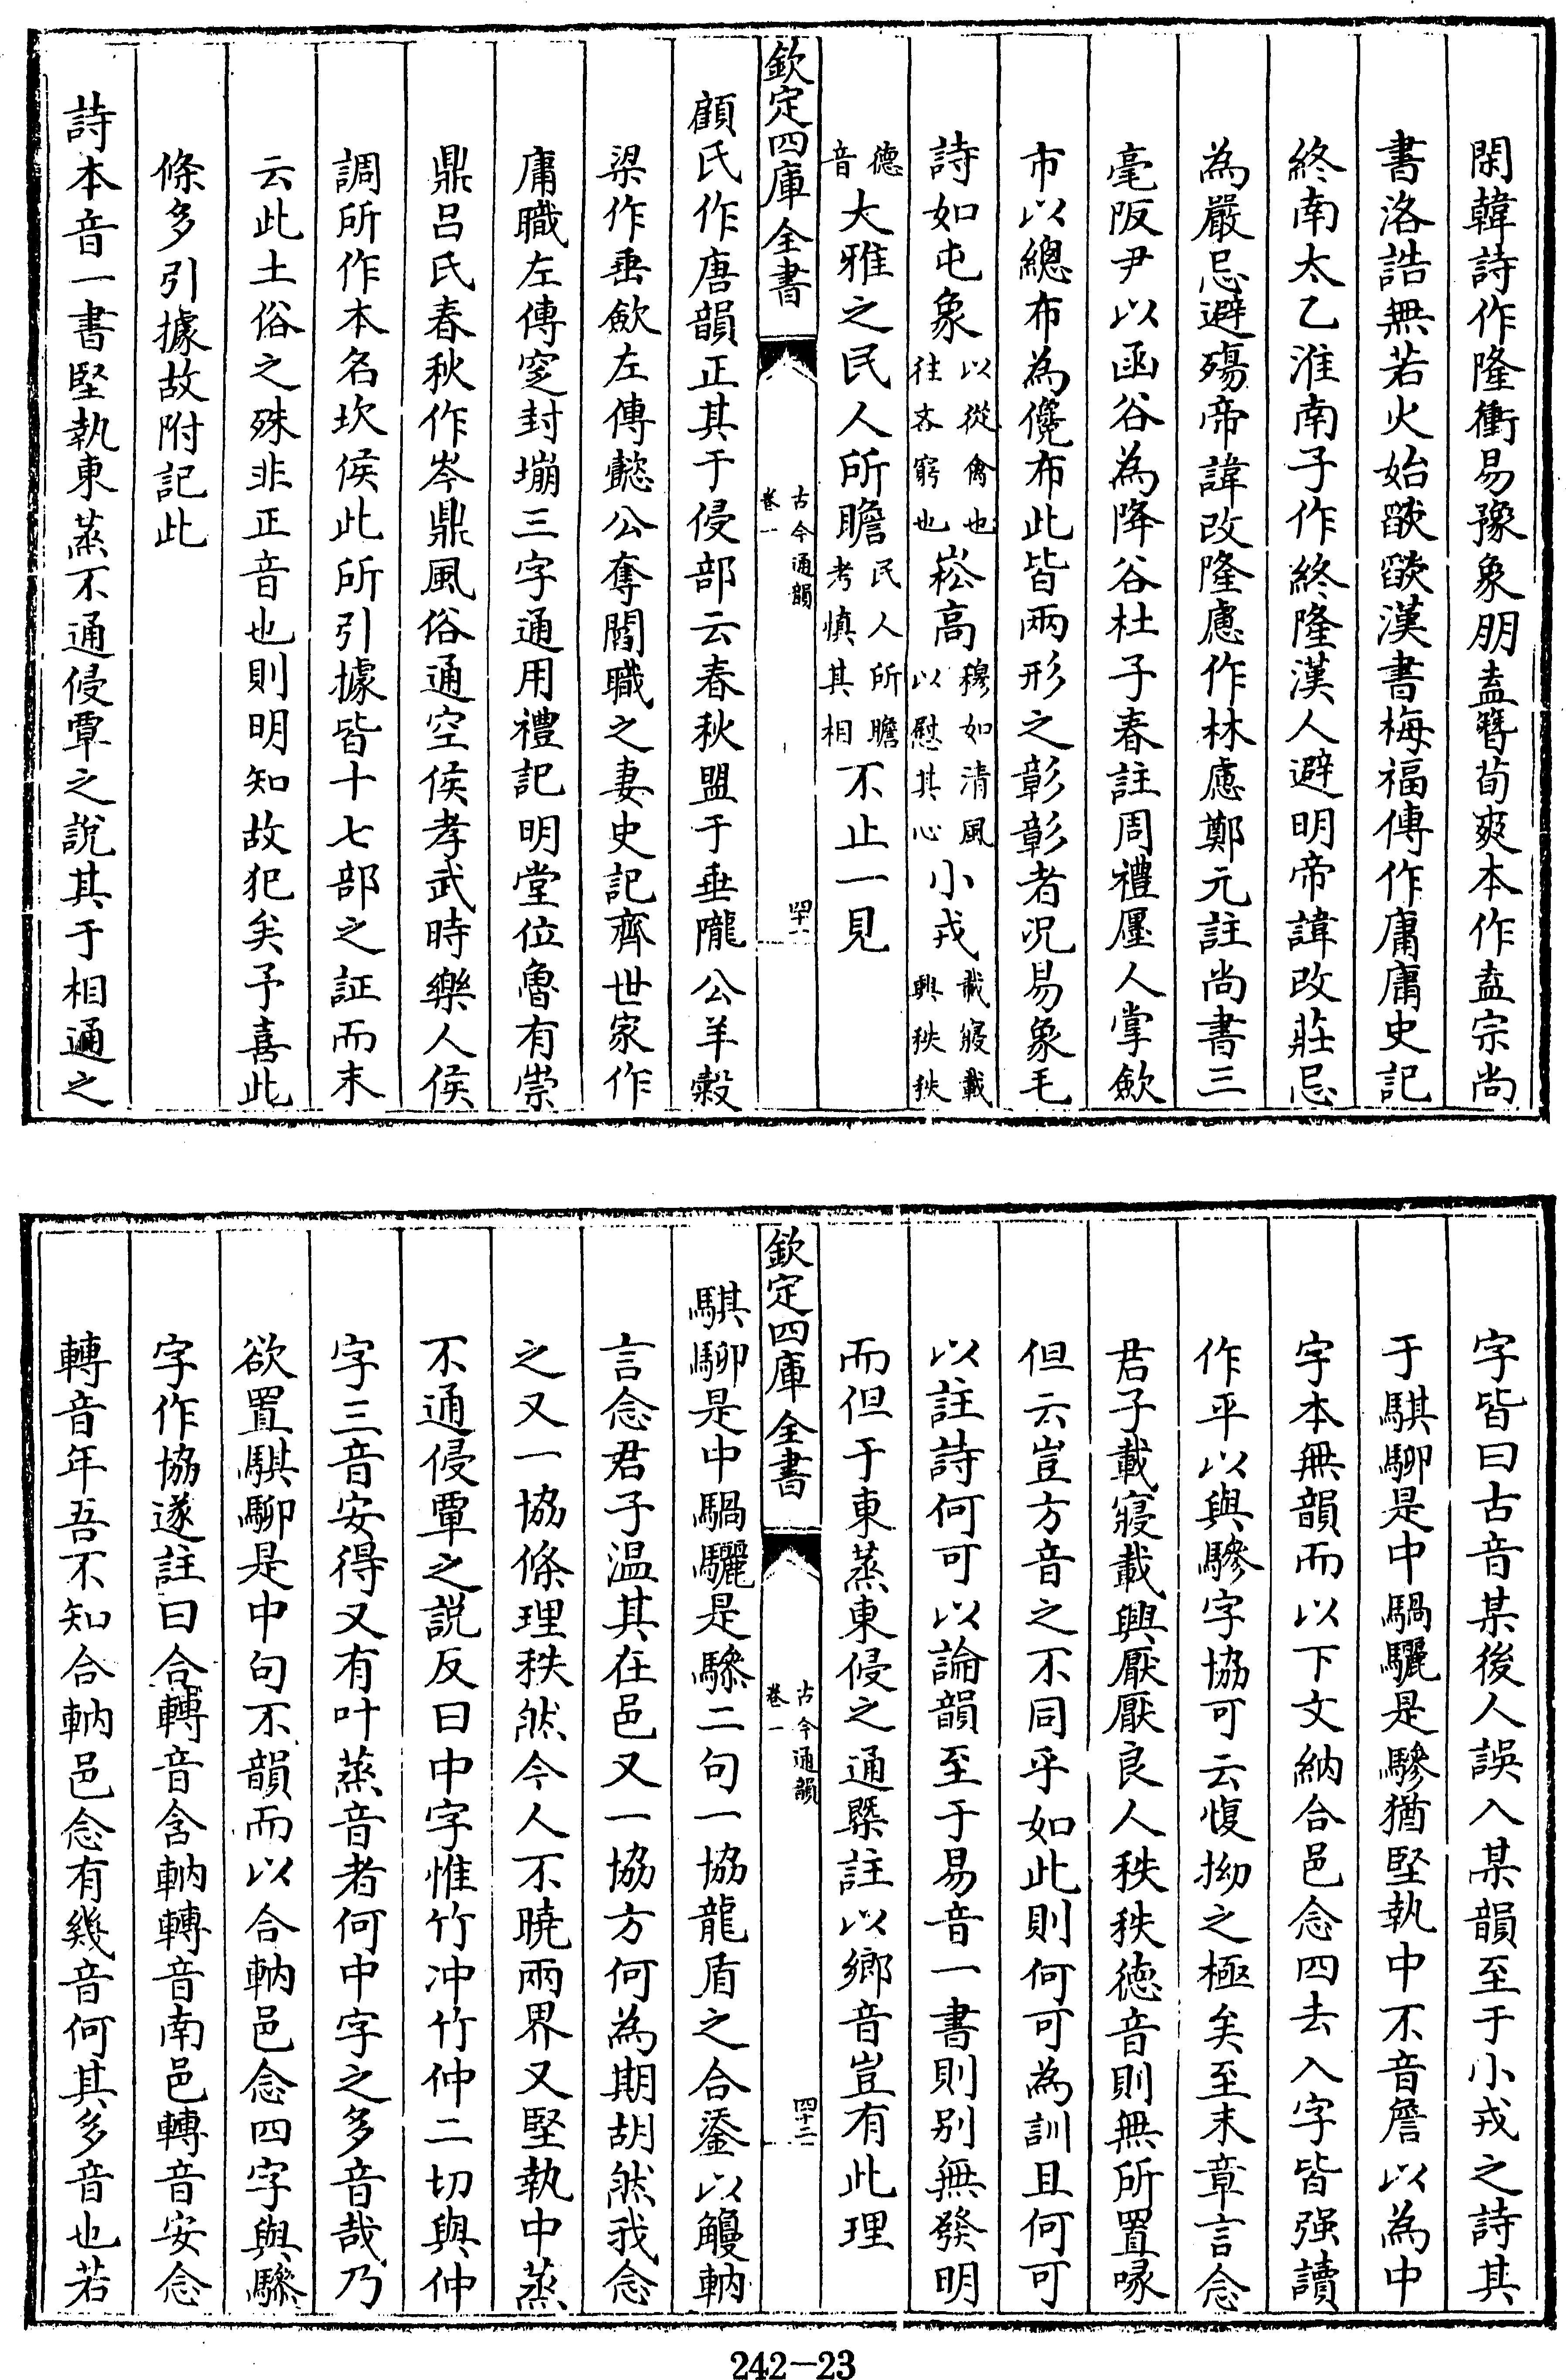 閑韓詩作隆衝易豫象朋盍簪荀爽本作盍宗尚
書洛誥無若火始燄燄漢書梅福傳作庸庸史記
終南太乙淮南子作終隆漢人避明帝諱改莊忌
為嚴忌避殤帝諱改隆慮作林慮鄭元註尚書三
毫阪尹以函谷為降谷杜子春註周禮廛人掌斂
市以總布為儳布此皆兩形之彰彰者况易象毛
詩如屯象以從禽也往吝窮也崧高穆如清風以慰其心小戎載寢載興秩秩
德音大雅之民人所瞻民人所瞻考慎其相不止一見
欽定四庫全書 古今通韻卷一 四十一
顧氏作唐韻正其于侵部云春秋盟于垂隴公羊穀
梁作垂斂左傳懿公奪閻職之妻史記齊世家作
庸職左傳窆封塴三字通用禮記明堂位魯有崇
鼎呂氏春秋作岑鼎風俗通空侯孝武時樂人侯
調所作本名坎侯此所引據皆十七部之証而末
云此土俗之殊非正音也則明知故犯矣予喜此
條多引據故附記此
詩本音一書堅執東蒸不通侵覃之說其于相通之
字皆曰古音某後人誤入某韻至于小戎之詩其
于騏駵是中騧驪是驂猶堅執中不音詹以為中
字本無韻而以下文納合邑念四去入字皆强讀
作平以與驂字協可云愎拗之極矣至末章言念
君子載寢載興厭厭良人秩秩德音則無所置喙
但云豈方音之不同乎如此則何可為訓且何可
以註詩何可以論韻至于易音一書則别無發明
而但于東蒸東侵之通槩註以鄉音豈有此理
欽定四庫全書 古今通韻卷一 四十二
騏駵是中騧驪是驂二句一協龍盾之合鋈以觼軜
言念君子温其在邑又一協方何為期胡然我念
之又一協條理秩然今人不曉兩界又堅執中蒸
不通侵覃之説反曰中字惟竹冲竹仲二切與仲
字三音安得又有叶蒸音者何中字之多音哉乃
欲置騏駵是中句不韻而以合軜邑念四字與驂
字作協遂註曰合轉音含軜轉音南邑轉音安念
轉音年吾不知合軜邑念有幾音何其多音也若
242-23